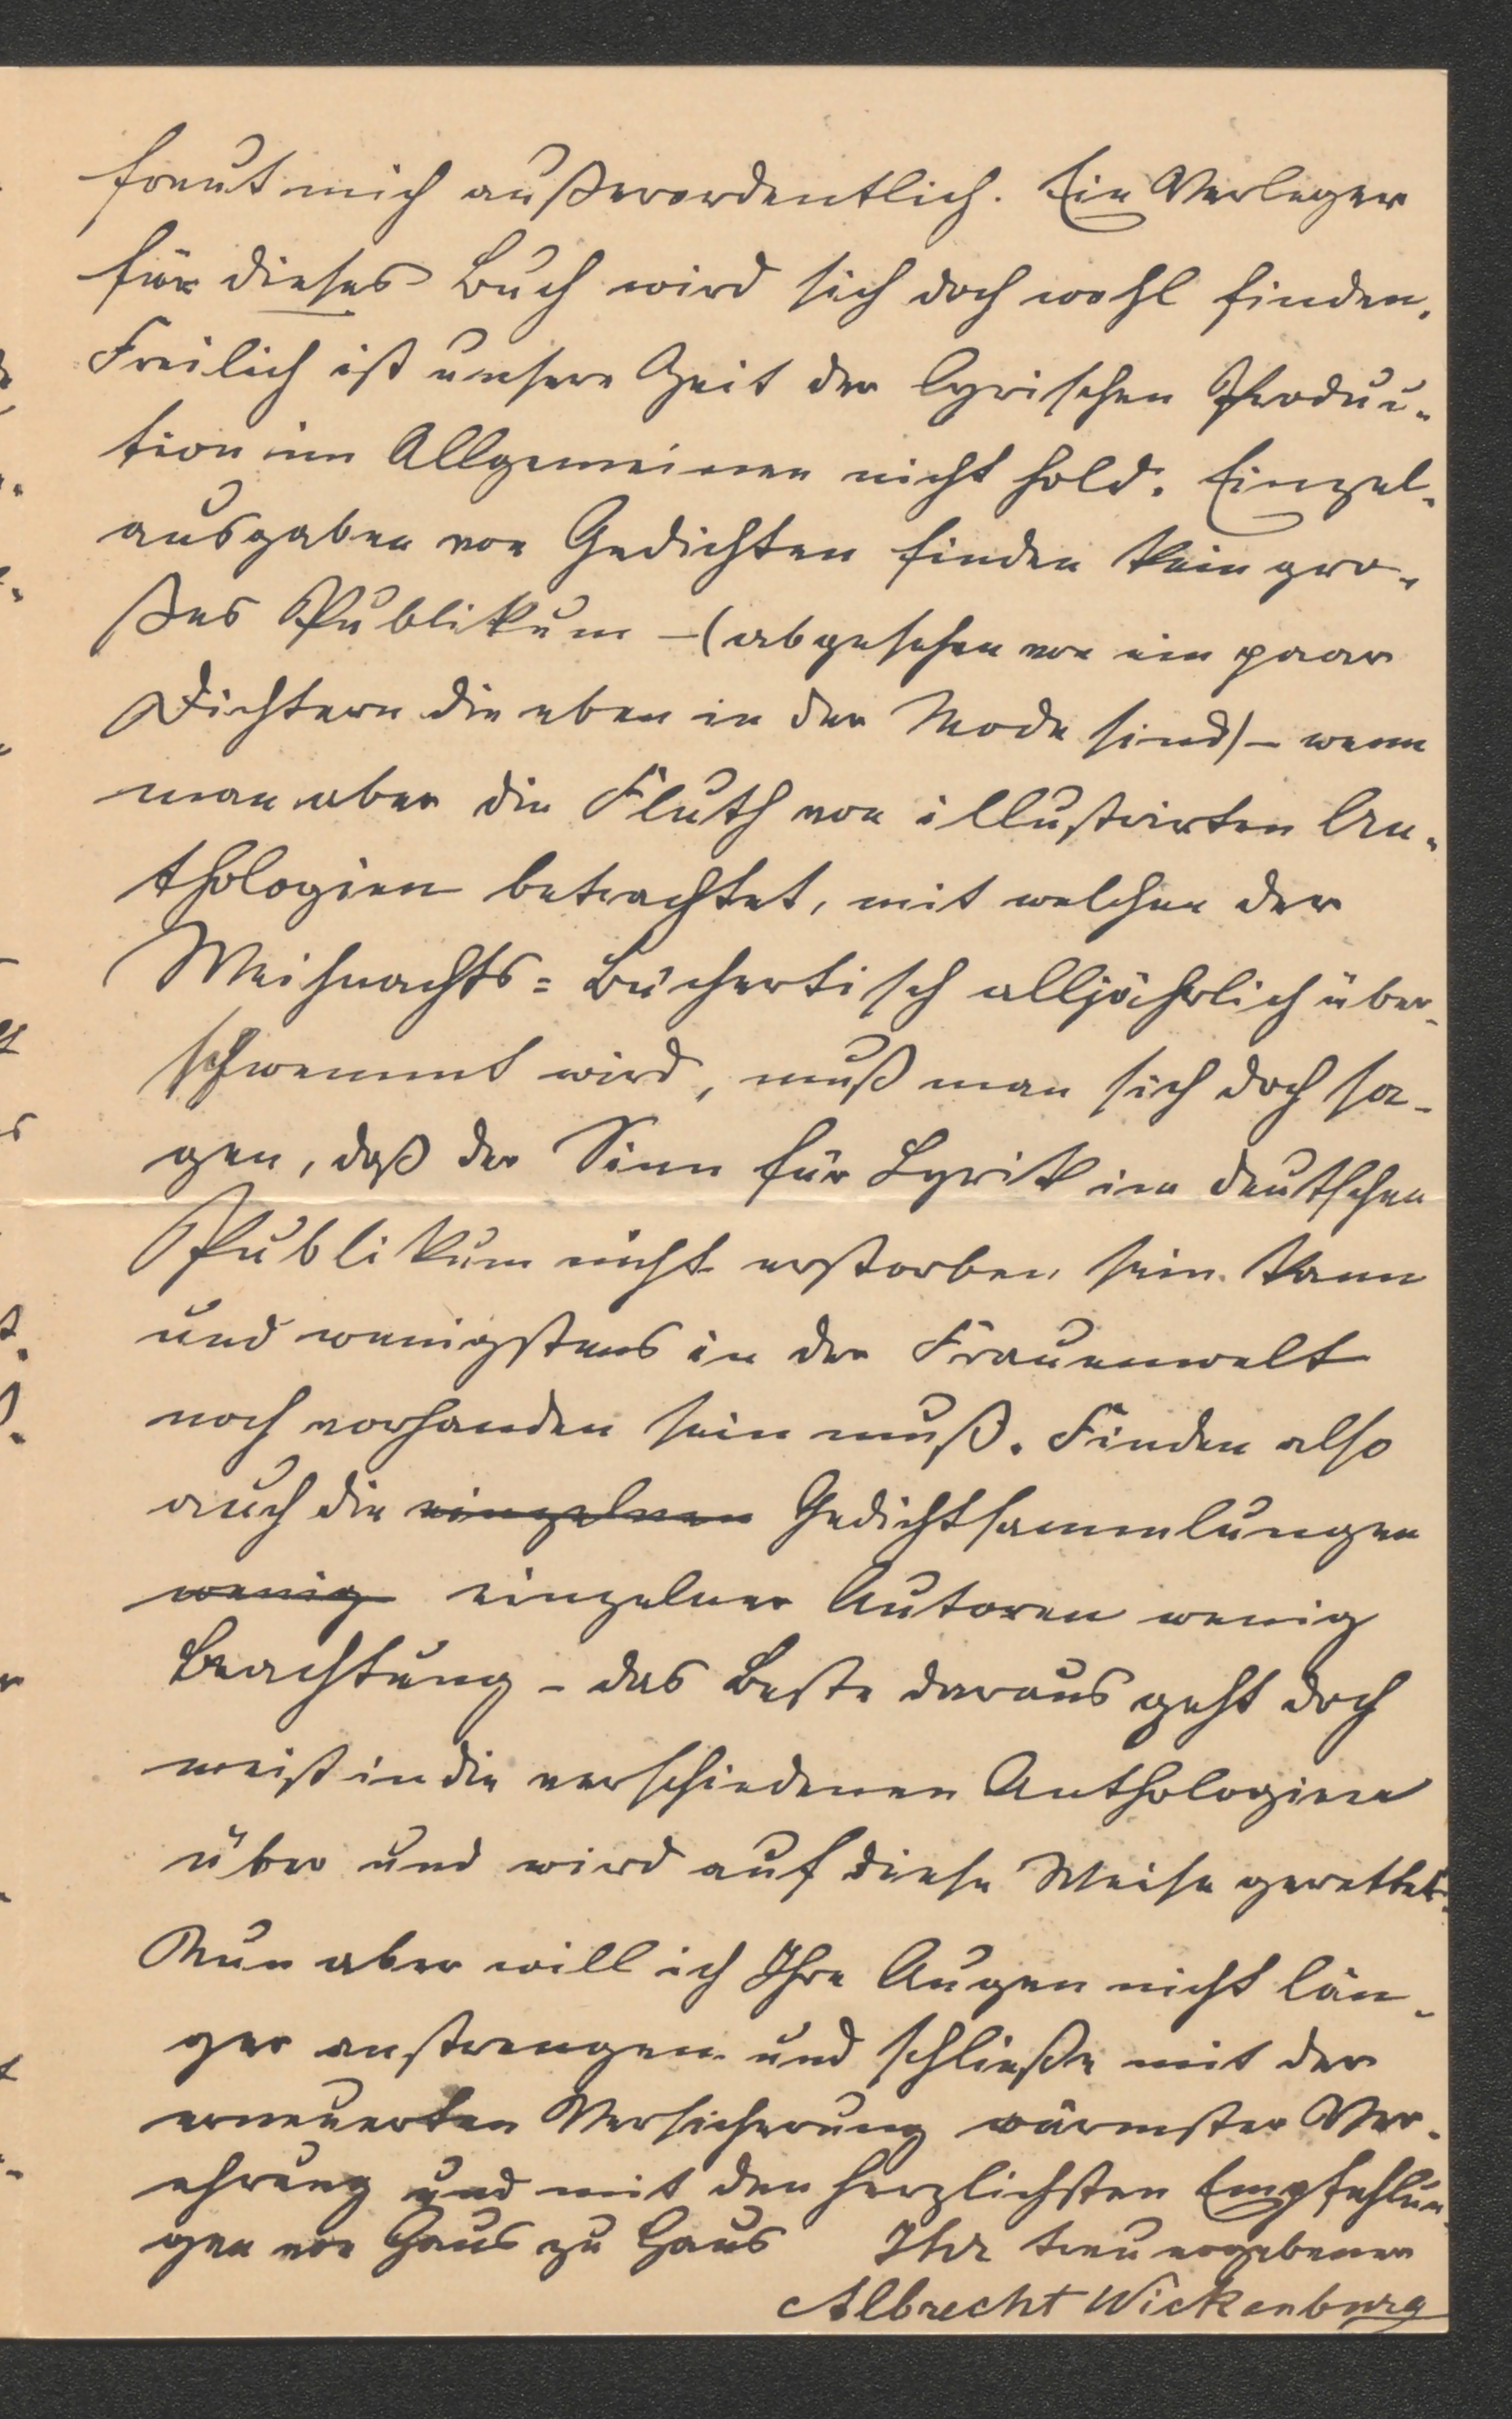 freut mich außerordentlich. Ein Verleger
für dieses Buch wird sich doch wohl finden.
Freilich ist unsere Zeit der lyrischen Produc-
tion im Allgemeinen nicht hold. Einzel-
ausgaben von Gedichten finden kein gro-
ßes Publikum – (abgesehen von ein paar
Dichtern die eben in der Mode sind) – wenn
man aber die Fluth von illustrirten An-
thologien betrachtet, mit welchen der
Weihnachts=Büchertisch alljährlich über-
schwemmt wird, muß man sich doch sa-
gen, daß der Sinn für Lyrik im deutschen
Publikum nicht erstorben sein kann
und wenigstens in der Frauenwelt
noch vorhanden sein muß. Finden also
auch die einzelnen Gedichtsammlungen
wenig einzelner Autoren wenig
Beachtung – das Beste daraus geht doch
meist in die verschiedenen Anthologien
über und wird auf diese Weise gerettet.
Nun aber will ich Ihre Augen nicht län-
ger anstrengen und schließe mit der
erneuerten Versicherung wärmster Ver-
ehrung und mit den herzlichsten Empfehlun-
gen von Haus zu Haus Ihr treu ergebener
Albrecht Wickenburg